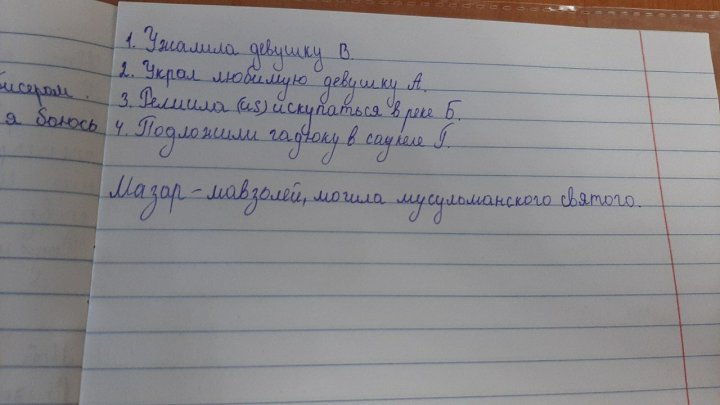 1. Ужалила девушку В.
2. Украл любимую девушку А.
бисером.
3. Решила (из) искупаться в реке Б.
я боюсь
4. Подложили гадюку в саукеле Г.
Мазар - мавзолей, могила мусульманского святого.